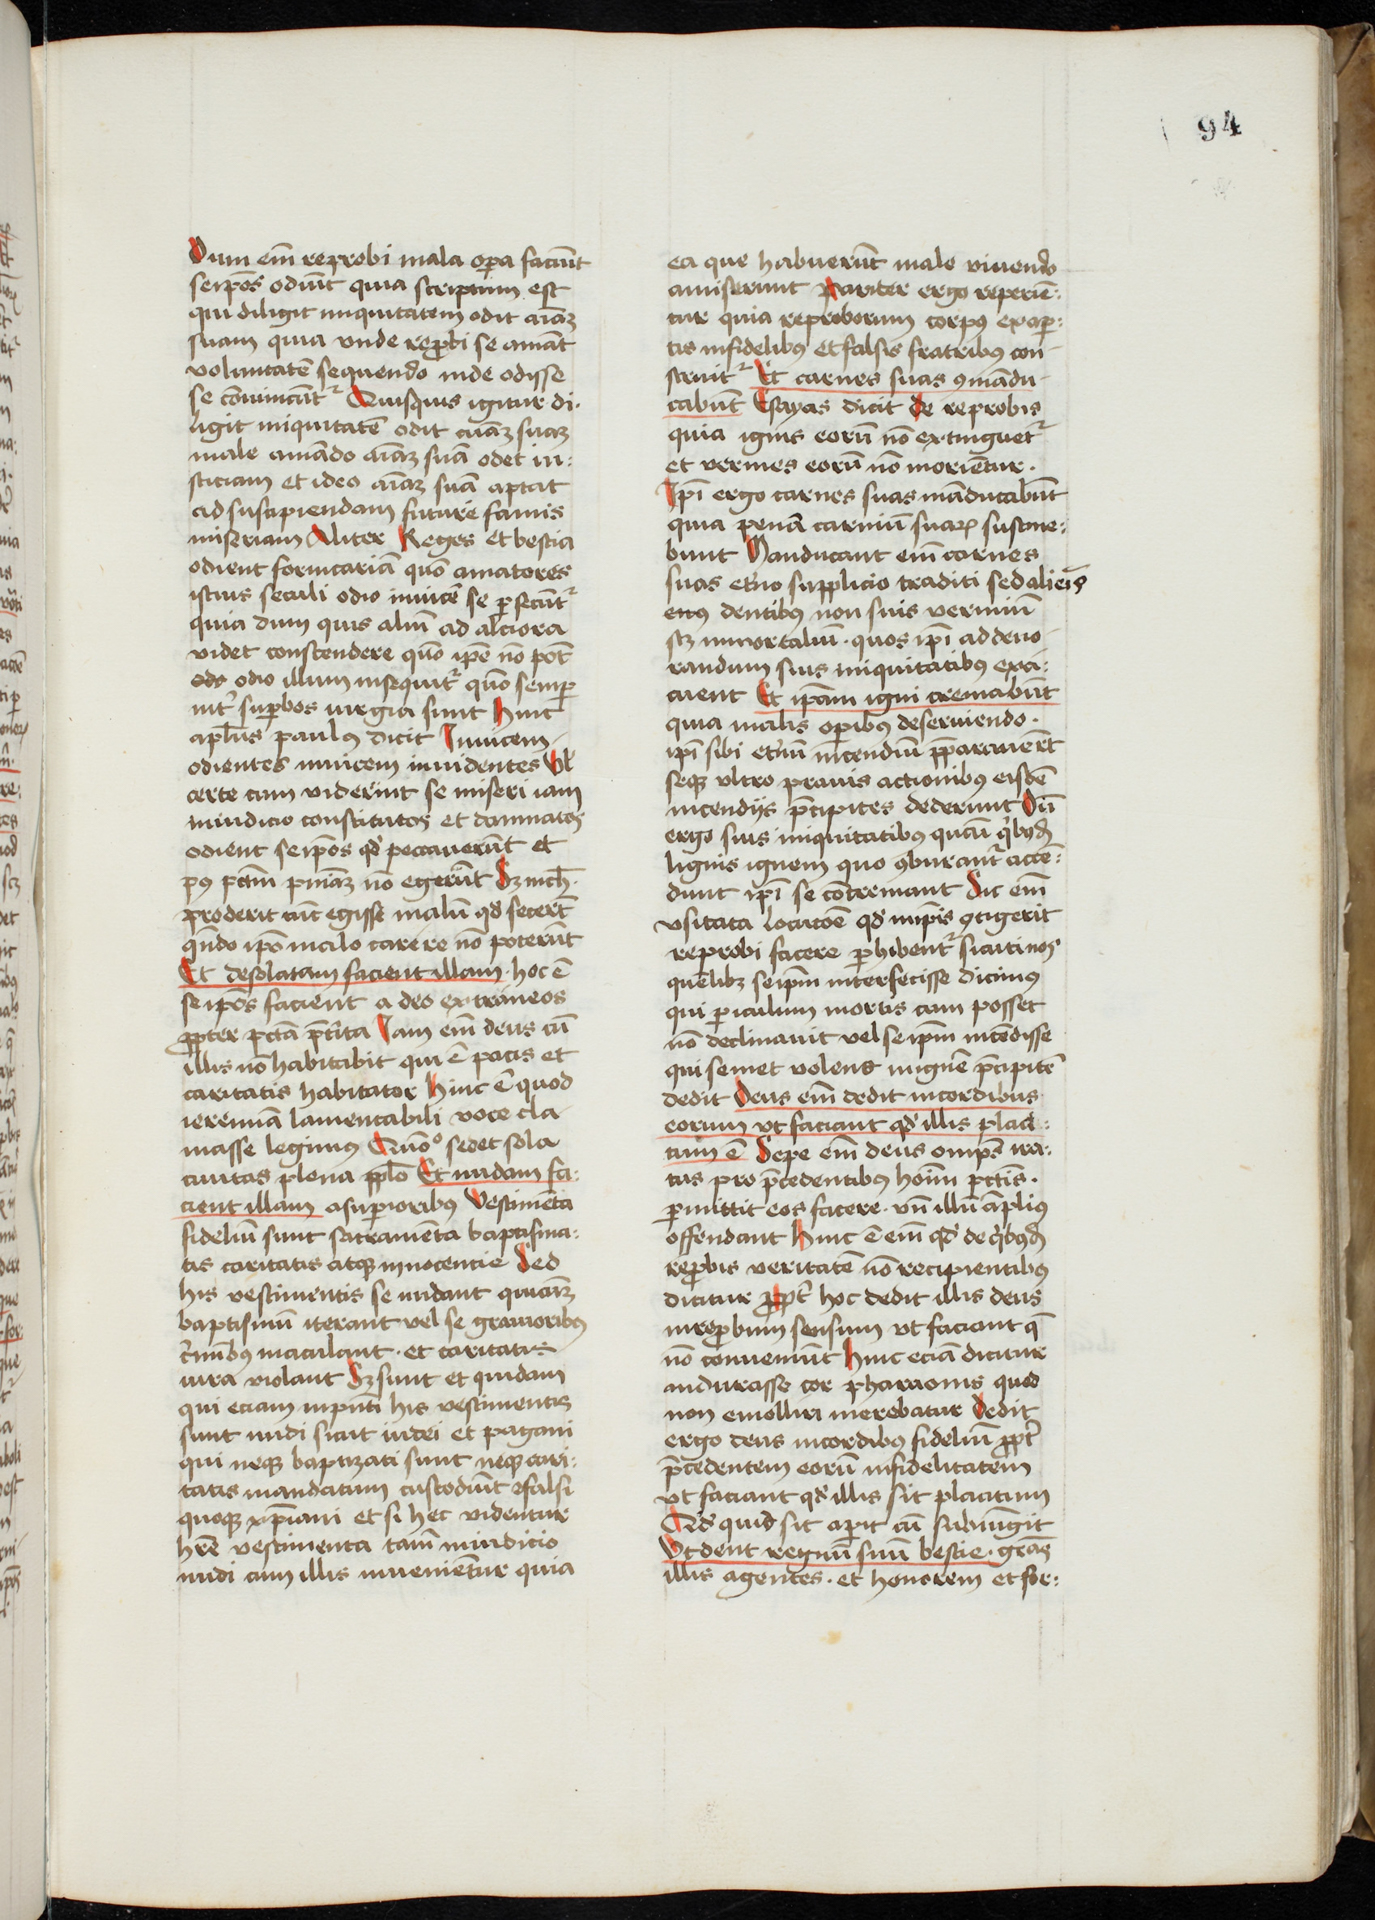 94
Dum em̄ reprobi mala opa faciūt
seip̄os odiūt quia scriptum est
qui diligit iniquitatem odit aīaꝫ
suam quia vnde rep̄obi se amāt
voluntatē sequendo inde odisse
se conuincūt᷑ Quisquis igitur di-
ligit iniquitatē odit aīaꝫ suaꝫ
male amādo aīaꝫ suā odet iu-
sticiam et ideo aīaꝫ suā aptat
ad suscipiendam future famis
miseriam Aliter Reges et bestia
odient fornicariā quō amatores
istius seculi odio inuicē se ꝑsecūt᷑
quia dum quis aliū ad alciora
videt conscendere quō ip̄e nō pōt
odo odio illum insequit᷑ quō semper
int̉ suꝑbos iurgia sunt Hinc
apl̄us paulus dicit Inuicem
odientes inuicem inuidentes Vl̓
certe cum viderint se miseri iam
in iudicio constitutos et damnatos
odient seip̄os qd̓ peccauerūt et
pꝰ pctm̄ pn̄iaꝫ nō egerūt Sꝫ nich̓
proderit tūc egisse malū qd̓ fecerūt
qn̄do ip̄o malo carere nō poterūt
Et desolatam facient illam hoc ē
seip̄os facient a deo extraneos
ꝓpter pctā p̄tita Iam em̄ deus cū
illis nō habitabit qui ē pacis et
caritatis habitator Hinc ē quod
ieremiā lamentabili voce cla-
masse legimus Quōº sedet sola
ciuitas plena pplo Et nudam fa-
cient illam a suꝑioribus Vestimēta
fideliū sunt sacramēta baptisma-
tis caritatis atqꝫ innocencie Sed
his vestimentis se nudant qui aīaꝫ
baptismū iterant vel se grauioribꝰ
c̓minibꝰ maculant · et caritatis
iura violant Sꝫ sunt et quidam
qui eciam inpn̄ti his vestimentis
sunt nudi sicut iudei et pagani
qui neqꝫ baptizati sunt neqꝫ cari-
tatis mandatum custodiūt ⁊ falsi
quoqꝫ xp̄iani et si hec videntur
hr̄e vestimenta tam̄ in iudicio
nudi cum illis inueniētur quia
ea que habuerūt male viuendo
amiserunt Pariter ergo reperiē-
tur quia reproborum corpꝰ ex aper-
tis infidelibꝰ et falsis fratribꝰ con-
struit᷑ Et carnes suas ꝯmādu-
cabūt Esayas dicit de reprobis
quia ignis eorū nō extinguet᷑
et vermes eorū nō morientur ·
Ip̄i ergo carnes suas māducabūt
quia penā carniū suaꝝ sustine-
bunt Manducant em̄ carnes
suas et̓no supplicio traditi sed alienis
dentibꝰ non suis vermiū
scꝫ inmortaliū · quos ip̄i ad deuo-
randum suis iniquitatibꝰ exci-
tarent Et ip̄am igni cremabūt
quia malis oꝑibꝰ deseruiendo ·
ip̄i sibi et̓nū incendiū p̄parauerūt
seqꝫ vltro prauis actionibꝰ eisdē
incendijs p̄cipites dederunt Dū
ergo suis iniquitatibꝰ quasi q̓bꝰdā
lignis ignem quo ꝯburant᷑ accē-
dunt ip̄i se concremant Sic em̄
vsitata locucōe qd̓ inip̄is ꝯtigerit
reprobi facere ꝑhibent᷑ sicuti nos
quēlibꝫ seip̄m interfecisse dicimus
qui ꝑiculum mortis cum posset
nō declinauit vel seip̄m incēdisse
qui semet volens inignē p̄cipitē
dedit Deus em̄ dedit in cordibus
eorum vt faciant qd̓ illis placi-
tum ē Sepe em̄ deus omps̄ ira-
tus pro p̄cedentibus hoīm pctīs ·
ꝑmittit eos facere · vn̄ illū āplius
offendant Hinc ē em̄ qd̓ de q̓bꝰdā
rep̄obis veritatē nō recipientibꝰ
dicitur ꝓpt̓ hoc dedit illis deus
in rep̄obum sensum vt faciant q̄
nō conueniūt Hinc eciā dicitur
indurasse cor pharaonis quod
non emolliri merebatur Dedit
ergo deus in cordibꝰ fideliū ꝓpt̓
p̄cedentem eorū infidelitatem
vt faciant qd̓ illis sit placitum
Qd̓ quid sit aperit cū subiungit
Vt dent regnū suū bestie · gr̄as
illis agentes · et honorem et for-